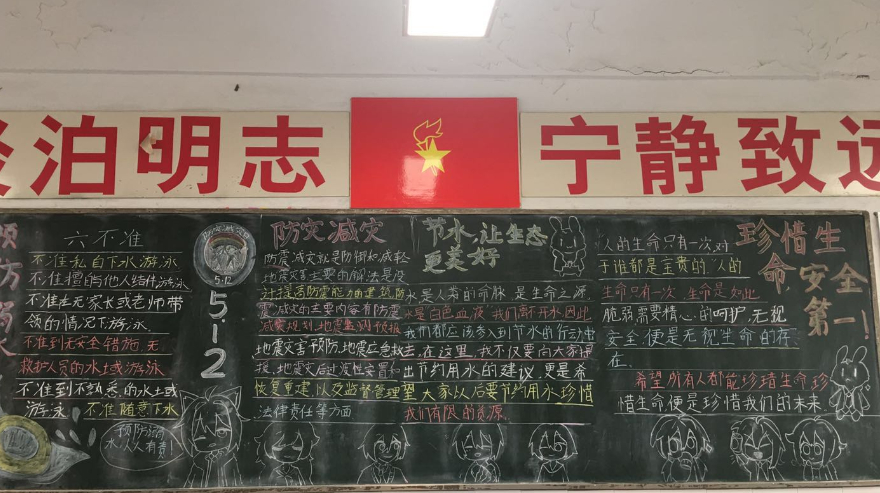 泊明志
宁静致远
预防溺水
六不准
不准私自下水游泳
不准擅自与他人结伴游泳
不准在无家长或老师带
领的情况下游泳
不准到无安全措施、无
救护人员的水土或游泳
不准到不熟悉的水土或
游泳 不准随意下水
预防溺
水人人有责!
5.12
5·12
防灾减灾
防震减灾就是防御和减轻
地震灾害主要的解法是设
计提高防震能力的建筑防
震减灾的主要内容有防震
减灾规划、地震监测预报
地震灾害预防、地震应急救
援、地震灾后过渡性安置和
恢复重建,以及监督管理
法律责任等方面
节水,让生态
更美好
水是人类的命脉,是生命之源,
水是白色血液,我们离不开水,因此
我们都应该参入到节水的行动中
去,在这里,我不仅要向大家提
出节约用水的建议,更是希
望大家以后要节约用水珍惜
我们有限的资源.
珍惜生
命,安全
第一!
人的生命只有一次,对
于谁都是宝贵的,人的
生命只有一次,生命是如此
脆弱,需要精心的呵护,无视
安全便是无视生命的存
在.
希望所有人都能珍惜生命珍
惜生命便是珍惜我们的未来.